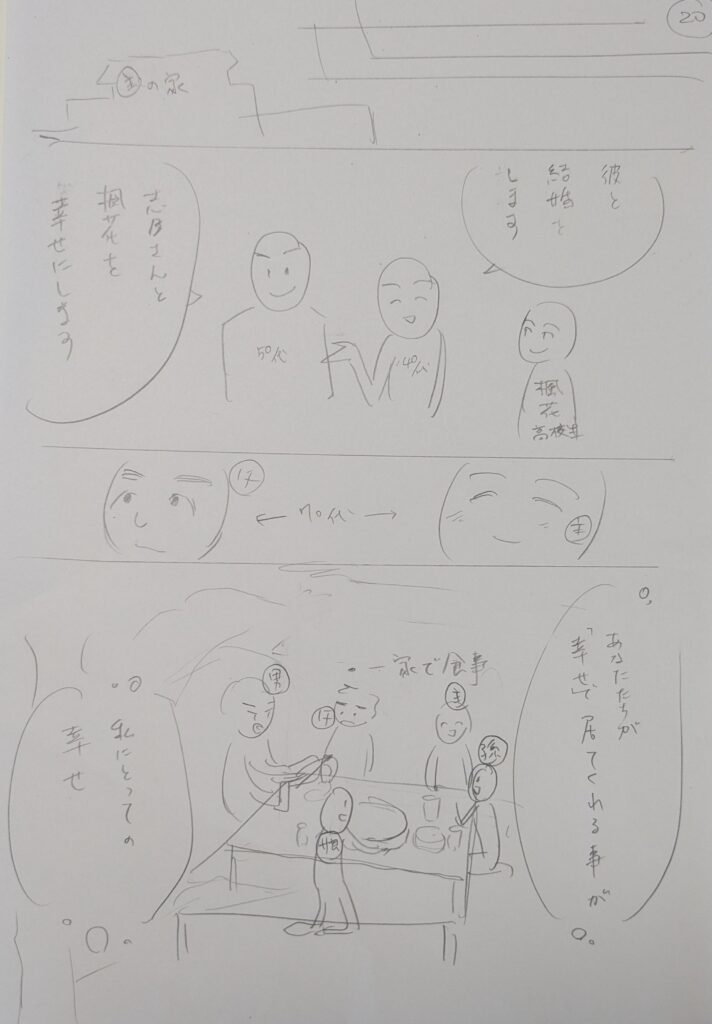 20
主の家
彼と
結婚を
します
さんと
楓花を
幸せにします
50代
40代
楓花
高校生
70代
主
・一家で食事
あなたたちが
「幸せ」で居てくれる事が
男
主
孫
娘
私にとっての
幸せ